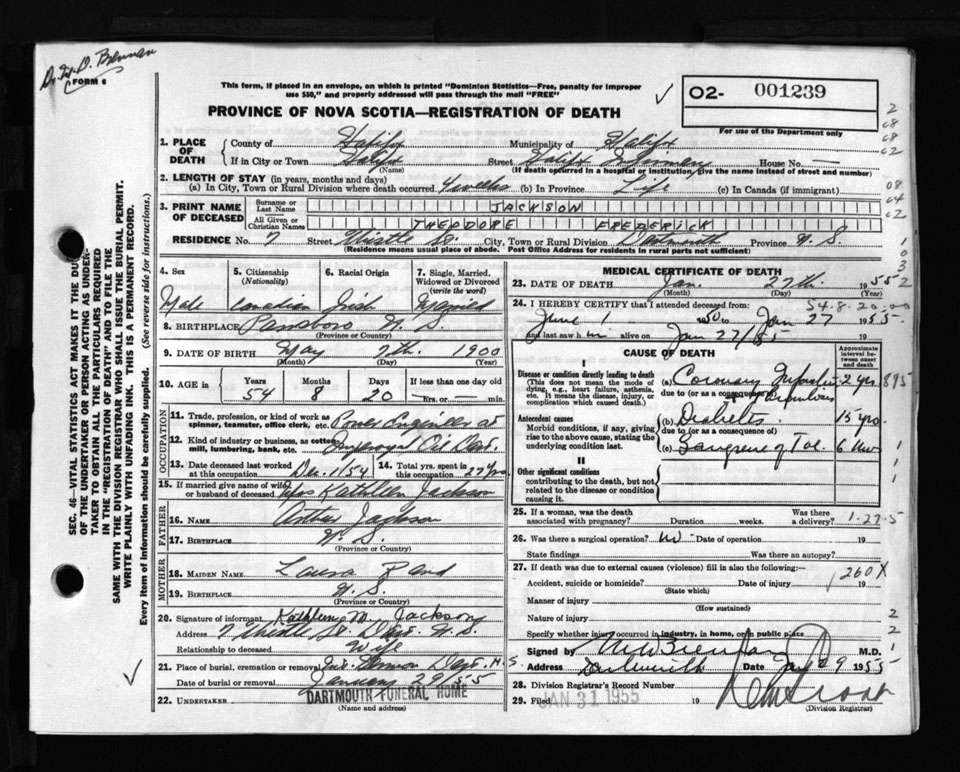 Dr. M. D. Brennan
FORM 6
This form, if placed in an envelope, on which is printed "Dominion Statistics—Free, penalty for improper
use $50," and properly addressed will pass through the mail "FREE"
PROVINCE OF NOVA SCOTIA—REGISTRATION OF DEATH
02- 001239
For use of the Department only
SEC. 46—VITAL STATISTICS ACT MAKES IT THE DUTY
OF THE UNDERTAKER OR PERSON ACTING AS UNDER-
TAKER TO OBTAIN ALL THE PARTICULARS REQUIRED
IN THE "REGISTRATION OF DEATH" AND TO FILE THE
SAME WITH THE DIVISION REGISTRAR WHO SHALL ISSUE THE BURIAL PERMIT.
WRITE PLAINLY WITH UNFADING INK. THIS IS A PERMANENT RECORD.
Every item of information should be carefully supplied. (See reverse side for instructions.)
1. PLACE OF DEATH County of Halifx Municipality of Halifx
If in City or Town Halifx Street Halifx Infirmary House No. —
(Name) (If death occurred in a hospital or institution, give the name instead of street and number)
2. LENGTH OF STAY (in years, months and days)
(a) In City, Town or Rural Division where death occurred 4 weeks (b) in Province Life (c) In Canada (if immigrant)
3. PRINT NAME OF DECEASED Surname or Last Name JACKSON
All Given or Christian Names THEODORE FREDERICK
RESIDENCE No. 7 Street Thistle St. City, Town or Rural Division Dartmouth Province N. S.
(Residence means usual place of abode. Post Office Address for residents in rural parts not sufficient)
4. Sex 5. Citizenship (Nationality) 6. Racial Origin 7. Single, Married, Widowed or Divorced (write the word)
Male Canadian Irish Married
8. BIRTHPLACE Parrsboro N. S.
(Province or Country)
9. DATE OF BIRTH May 7th. 1900
(Month) (Day) (Year)
10. AGE in Years Months Days If less than one day old
54 8 20 — hrs. or — min.
OCCUPATION
11. Trade, profession, or kind of work as spinner, teamster, office clerk, etc. Power Engineer at
12. Kind of industry or business, as cotton mill, lumbering, bank, etc. Imperial Oil
13. Date deceased last worked at this occupation Dec. 1/54 14. Total yrs. spent in this occupation 27 yrs
15. If married give name of wife or husband of deceased Mrs Kathleen Jackson
FATHER
16. NAME Arthur Jackson
17. BIRTHPLACE N. S.
(Province or Country)
MOTHER
18. MAIDEN NAME Laura
19. BIRTHPLACE N. S.
(Province or Country)
20. Signature of informant Kathleen M. Jackson
Address 7 Thistle St. Dart. N. S.
Relationship to deceased Wife
21. Place of burial, cremation or removal Mt. Hermon Dart. N. S.
Date of burial or removal January 29/55
22. UNDERTAKER DARTMOUTH FUNERAL HOME
(Name and address)
MEDICAL CERTIFICATE OF DEATH
23. DATE OF DEATH Jan. 27th. 1955
(Month) (Day) (Year)
24. I HEREBY CERTIFY that I attended deceased from: 54-8-20-00
June 1 1950 to Jan 27 1955
and last saw him alive on Jan 27/55
CAUSE OF DEATH
Approximate interval between onset and death
I
Disease or condition directly leading to death
(This does not mean the mode of dying, e.g., heart failure, asthenia, etc. It means the disease, injury, or complication which caused death.)
(a) Coronary 2 yrs 895
due to (or as a consequence of)
Antecedent causes
Morbid conditions, if any, giving rise to the above cause, stating the underlying condition last.
(b) Diabetes 15 yrs.
due to (or as a consequence of)
(c) Gangrene of Toe. 6
II
Other significant conditions
contributing to the death, but not related to the disease or condition causing it.
25. If a woman, was the death associated with pregnancy? Duration weeks. Was there a delivery? 1-27-5
26. Was there a surgical operation? no Date of operation 19
State findings Was there an autopsy?
27. If death was due to external causes (violence) fill in also the following:— 260X
Accident, suicide or homicide? Date of injury 19
(State which)
Manner of injury
(How sustained)
Nature of injury
Specify whether injury occurred in industry, in home, or in public place
Signed by M D Brennan M.D.
Address Dartmouth Date Jan 29 1955
28. Division Registrar's Record Number
29. Filed JAN 31 1955 19
(Division Registrar)